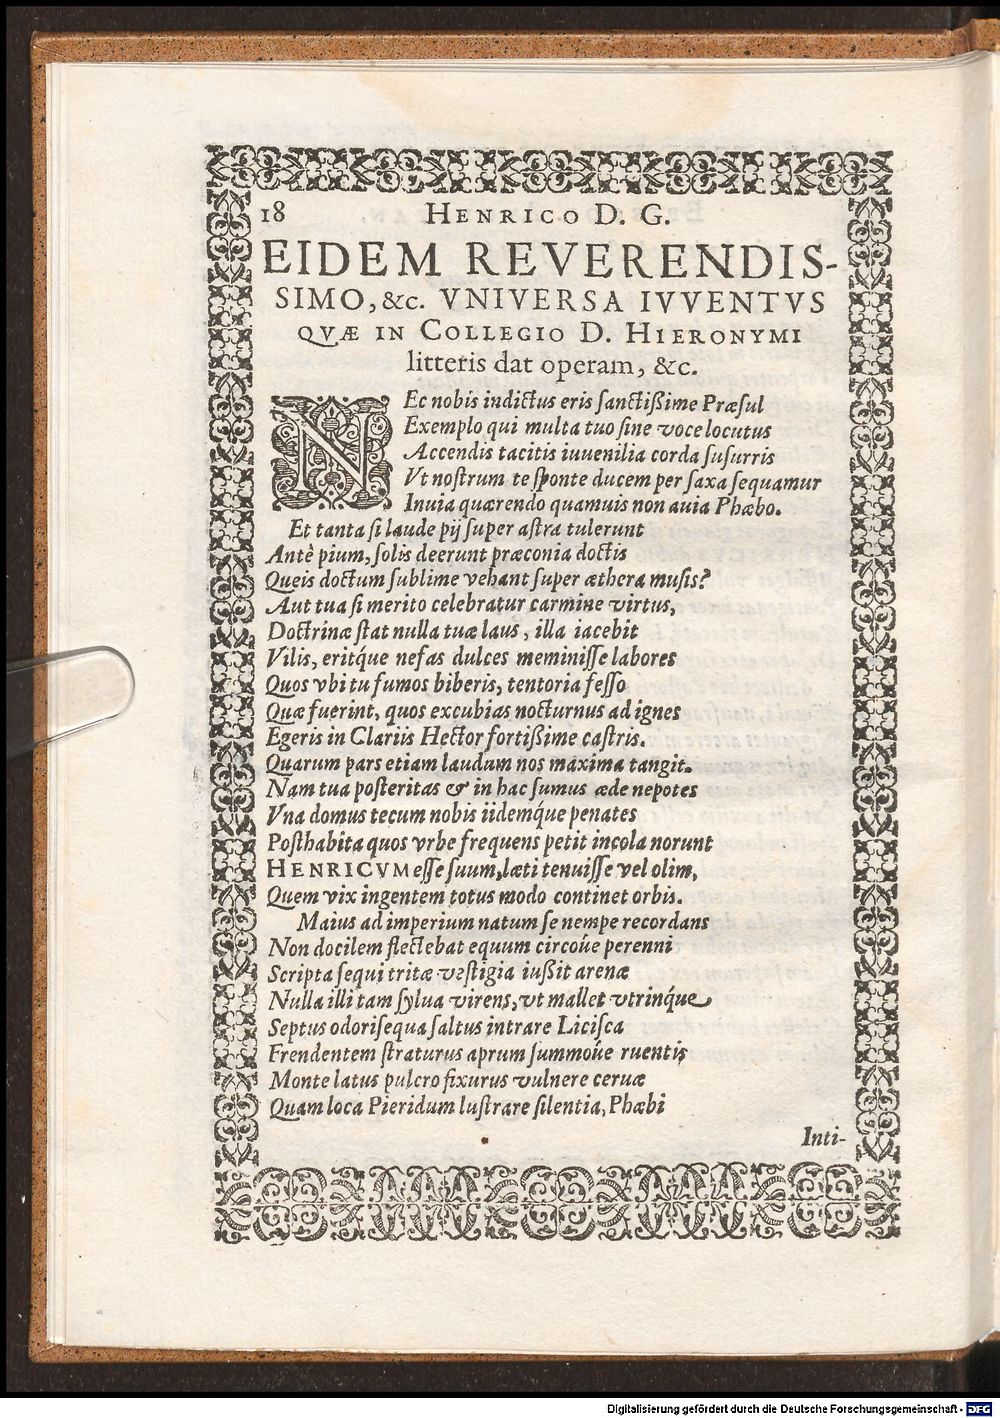 18 HENRICO D. G.
EIDEM REVERENDIS-
SIMO, &c. VNIVERSA IVVENTVS
QVÆ IN COLLEGIO D. HIERONYMI
litteris dat operam, &c.
NEc nobis indictus eris ſanctißime Præſul
Exemplo qui multa tuo ſine voce locutus
Accendis tacitis iuuenilia corda ſuſurris
Vt noſtrum te ſponte ducem per ſaxa ſequamur
Inuia quærendo quamuis non auia Phæbo.
Et tanta ſi laude pij ſuper aſtra tulerunt
Antè pium, ſolis deerunt præconia doctis
Queis doctum ſublime vehant ſuper æthera muſis?
Aut tua ſi merito celebratur carmine virtus,
Doctrinæ ſtat nulla tuæ laus, illa iacebit
Vilis, eritq́ue nefas dulces meminiſſe labores
Quos vbi tu fumos biberis, tentoria feſſo
Quæ fuerint, quos excubias nocturnus ad ignes
Egeris in Clariis Hector fortißime caſtris.
Quarum pars etiam laudum nos maxima tangit.
Nam tua poſteritas & in hac ſumus æde nepotes
Vna domus tecum nobis iidemq́ue penates
Poſthabita quos vrbe frequens petit incola norunt
HENRICVM eſſe ſuum, læti tenuiſſe vel olim,
Quem vix ingentem totus modo continet orbis.
Maius ad imperium natum ſe nempe recordans
Non docilem flectebat equum circoúe perenni
Scripta ſequi tritæ veſtigia iußit arenæ
Nulla illi tam ſylua virens, vt mallet vtrinq́ue
Septus odoriſequa ſaltus intrare Liciſca
Frendentem ſtraturus aprum ſummoúe ruentis
Monte latus pulcro fixurus vulnere ceruæ
Quam loca Pieridum luſtrare ſilentia, Phæbi
Inti-
Digitalisierung gefördert durch die Deutsche Forschungsgemeinschaft - DFG